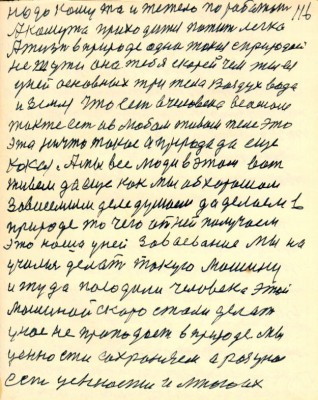 надо кому та и тежело поработат 116
А кому та приходити потит легка
А тут в природе одна така с природой
не шути она тебя скорей чем
у ней основных три тела Воздух вода
и Земля Что ест в человека в
то же ест и в любом живом теле Это
эта ни что такое а природа да еще
кокоя. А мы все люди в этом вот
живем да еще как мы об хорошом
Зависемым деле думаем да делаем в
природе то чего от ней получаем
Это наша у ней Завоевание Мы на
учился делат Такую Машину
и туда посодили человека Этой
Машиной скоро стали делат
у нас не проподает в природе мы
ценности сохраняем а разума
ест ценности и многих